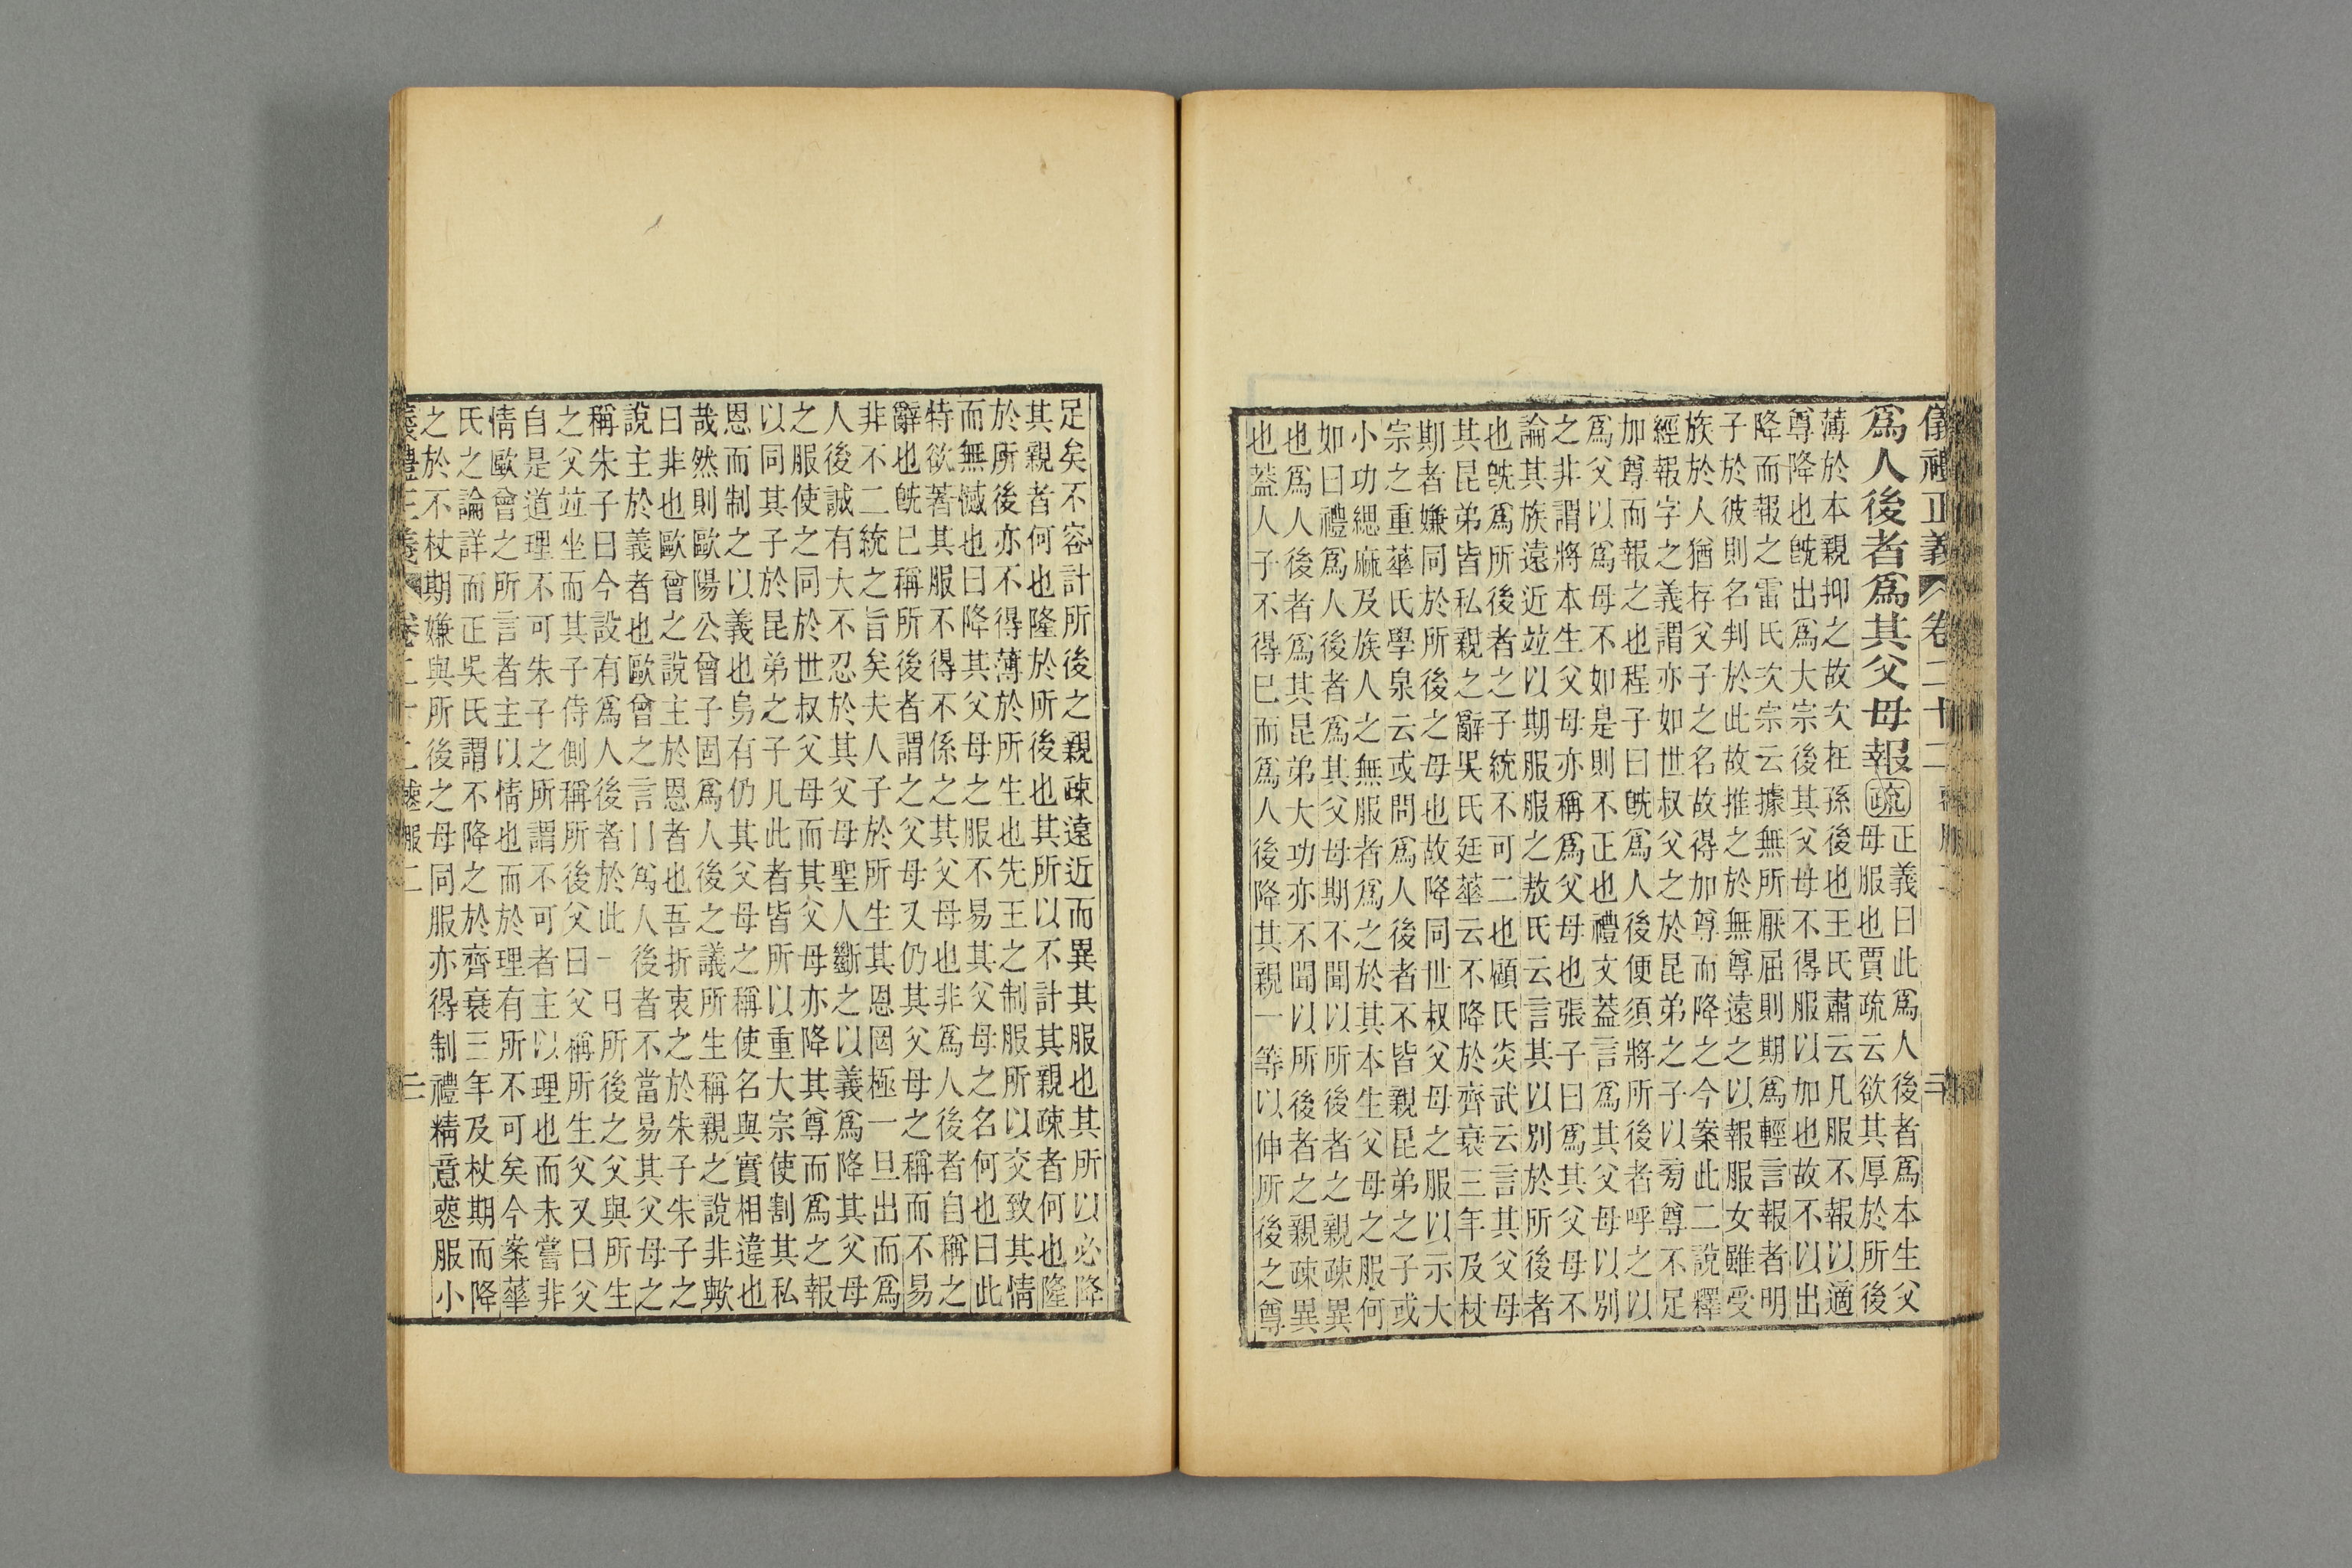 儀禮正義 卷二十二 喪服二
爲人後者爲其父母報 疏 正義曰此爲人後者爲本生父
母服也賈疏云欲其厚於所後
薄於本親抑之故次在孫後也王氏肅云凡服不報以適
尊降也旣出爲大宗後其父母不得服以加也故不以出
降而報之雷氏次宗云據無所厭屈則期爲輕言報者明
子於彼則名判於此故推之於無尊遠之以報服女雖受
族於人猶存父子之名故得加尊而降之今案此二說釋
經報字之義謂亦如世叔父之於昆弟之子以旁尊不足
加尊而報之也程子曰旣爲人後便須將所後者呼之以
爲父以爲母不如是則不正也禮文蓋言爲其父母以別
之非謂將本生父母亦稱爲父母也張子曰爲其父母不
論其族遠近竝以期服服之敖氏云言其以別於所後者
也旣爲所後者之子統不可二也顧氏炎武云言其父母
其昆弟皆私親之辭吳氏廷華云不降於齊衰三年及杖
期者嫌同於所後之母也故降同世叔父母之服以示大
宗之重華氏學泉云或問爲人後者不皆親昆弟之子或
小功緦麻及族人之無服者爲之於其本生父母之服何
如曰禮爲人後者爲其父母期不聞以所後者之親疎異
也爲人後者爲其昆弟大功亦不聞以所後者之親疎異
也蓋人子不得已而爲人後降其親一等以伸所後之尊
足矣不容計所後之親疎遠近而異其服也其所以必降
其親者何也隆於所後也其所以不計其親疎者何也隆
於所後亦不得薄於所生也先王之制服所以交致其情
而無憾也曰降其父母之服不易其父母之名何也曰此
特欲著其服不得不係之其父母也非爲人後者自稱之
辭也旣已稱所後者謂之父母又仍其父母之稱而不易
非不二統之旨矣夫人子於所生其恩罔極一旦出而爲
人後誠有大不忍於其父母聖人斷之以義爲降其父母
之服使之同於世叔父母而其父母亦降其尊而爲之報
以同其子於昆弟之子凡此者皆所以重大宗使割其私
恩而制之以義也烏有仍其父母之稱使名與實相違也
哉然則歐陽公曾子固爲人後之議所生稱親之說非歟
曰非也歐曾之說主於恩者也吾折衷之於朱子朱子之
說主於義者也歐曾之言曰爲人後者不當易其父母之
稱朱子曰今設有爲人後者於此一日所後之父與所生
之父竝坐而其子侍側稱所後父曰父稱所生父又曰父
自是道理不可朱子之所謂不可者主以理也而未嘗非
情歐曾之所言者主以情也而於理有所不可矣今案華
氏之論詳而正吳氏謂不降之於齊衰三年及杖期而降
之於不杖期嫌與所後之母同服亦得制禮精意喪服小
儀禮正義 卷二十二 喪服二